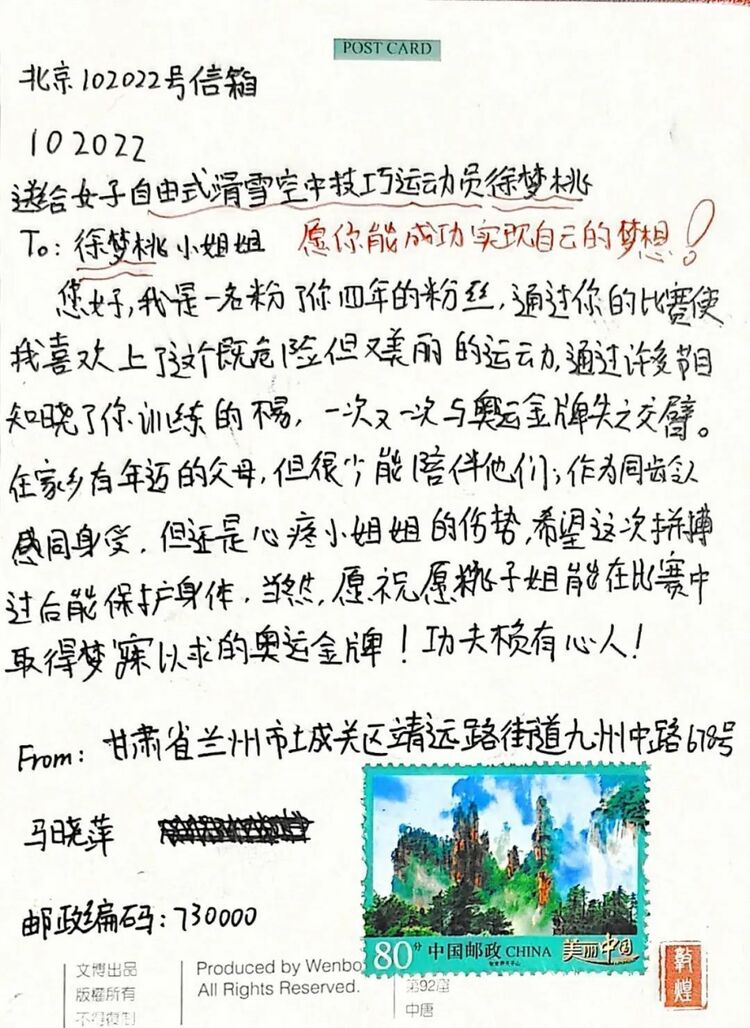 POST CARD
北京102022号信箱
102022
送给女子自由式滑雪空中技巧运动员徐梦桃
To: 徐梦桃小姐姐 愿你能成功实现自己的梦想!
您好,我是一名粉了你四年的粉丝,通过你的比赛使
我喜欢上了这个既危险但又美丽的运动,通过许多节目
知晓了你训练的不易,一次又一次与奥运金牌失之交臂。
在家乡有年迈的父母,但很少能陪伴他们;作为同龄人
感同身受,但还是心疼小姐姐的伤势,希望这次拼搏
过后能保护身体,当然,愿祝愿桃子姐能在比赛中
取得梦寐以求的奥运金牌!功夫赖有心人!
From: 甘肃省兰州市城关区靖远路街道九州中路678号
马晓萍
邮政编码:730000
80分 中国邮政 CHINA 美丽中国
文博出品
版權所有
不得復制
Produced by Wenbo
All Rights Reserved.
第92窟
中唐
敦煌